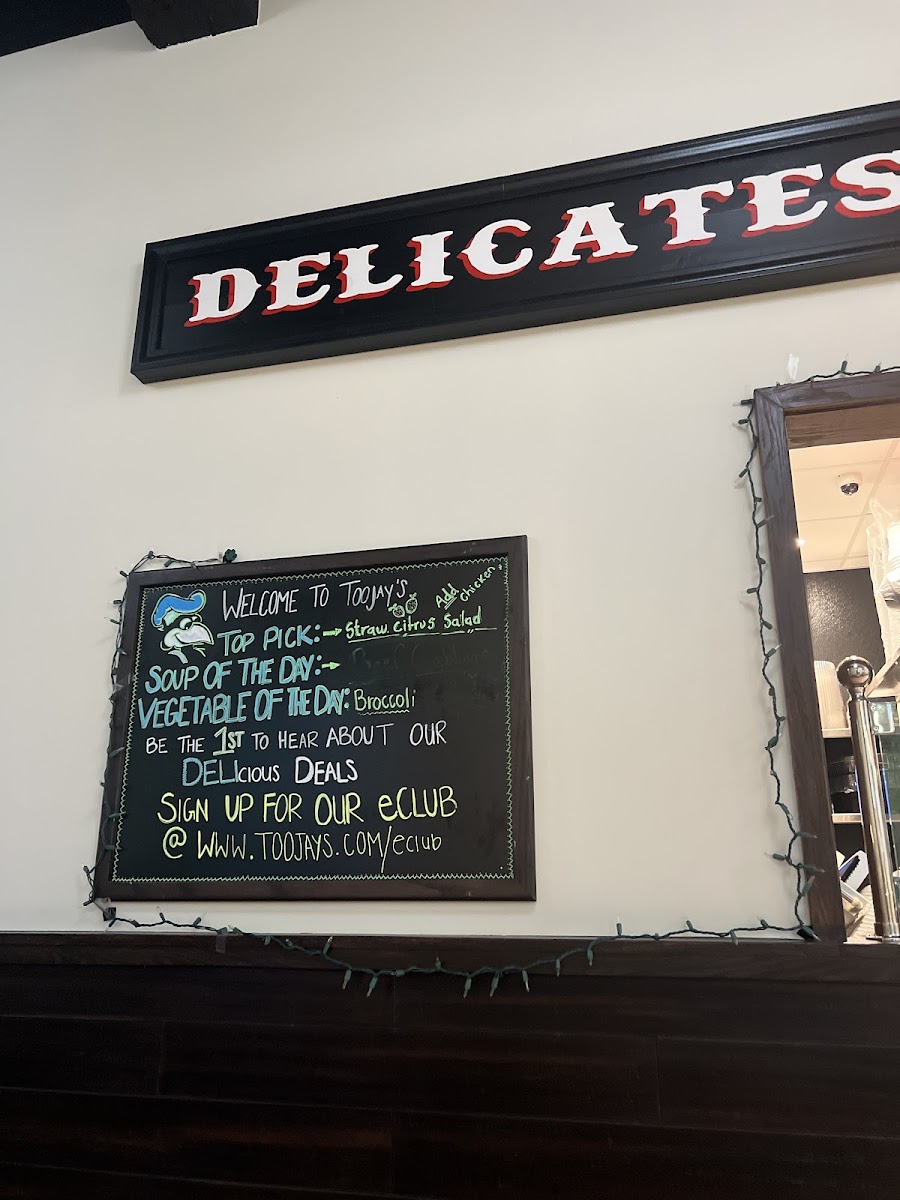 DELICATES
WELCOME TO TOOJAY'S
Add chicken
TOP PICK: → Straw. Citrus Salad
SOUP OF THE DAY: → Beef Cabbage
VEGETABLE OF THE DAY: Broccoli
BE THE 1ST TO HEAR ABOUT OUR
DELIcious DEALS
SIGN UP FOR OUR eCLUB
@ WWW.TOOJAYS.COM/eclub